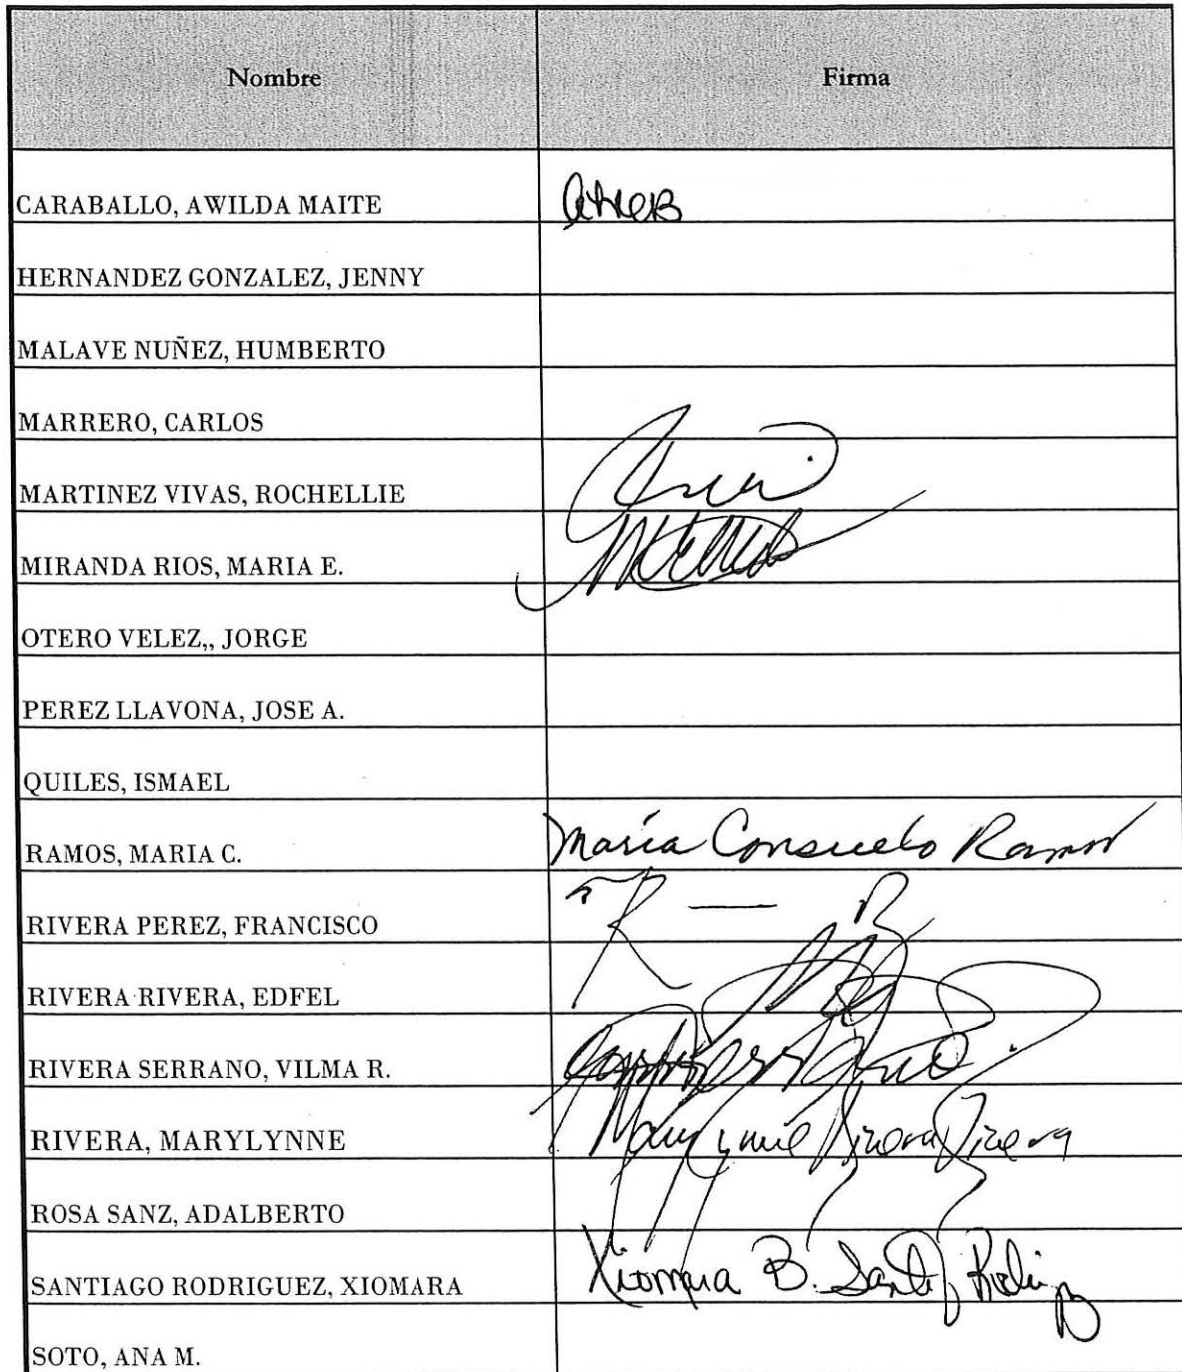 Nombre Firma
CARABALLO, AWILDA MAITE
HERNANDEZ GONZALEZ, JENNY
MALAVE NUÑEZ, HUMBERTO
MARRERO, CARLOS
MARTINEZ VIVAS, ROCHELLIE
MIRANDA RIOS, MARIA E.
OTERO VELEZ,, JORGE
PEREZ LLAVONA, JOSE A.
QUILES, ISMAEL
RAMOS, MARIA C. María Consuelo Ramos
RIVERA PEREZ, FRANCISCO
RIVERA RIVERA, EDFEL
RIVERA SERRANO, VILMA R.
RIVERA, MARYLYNNE Marylynne Rivera Rivera
ROSA SANZ, ADALBERTO
SANTIAGO RODRIGUEZ, XIOMARA Xiomara B.
SOTO, ANA M.